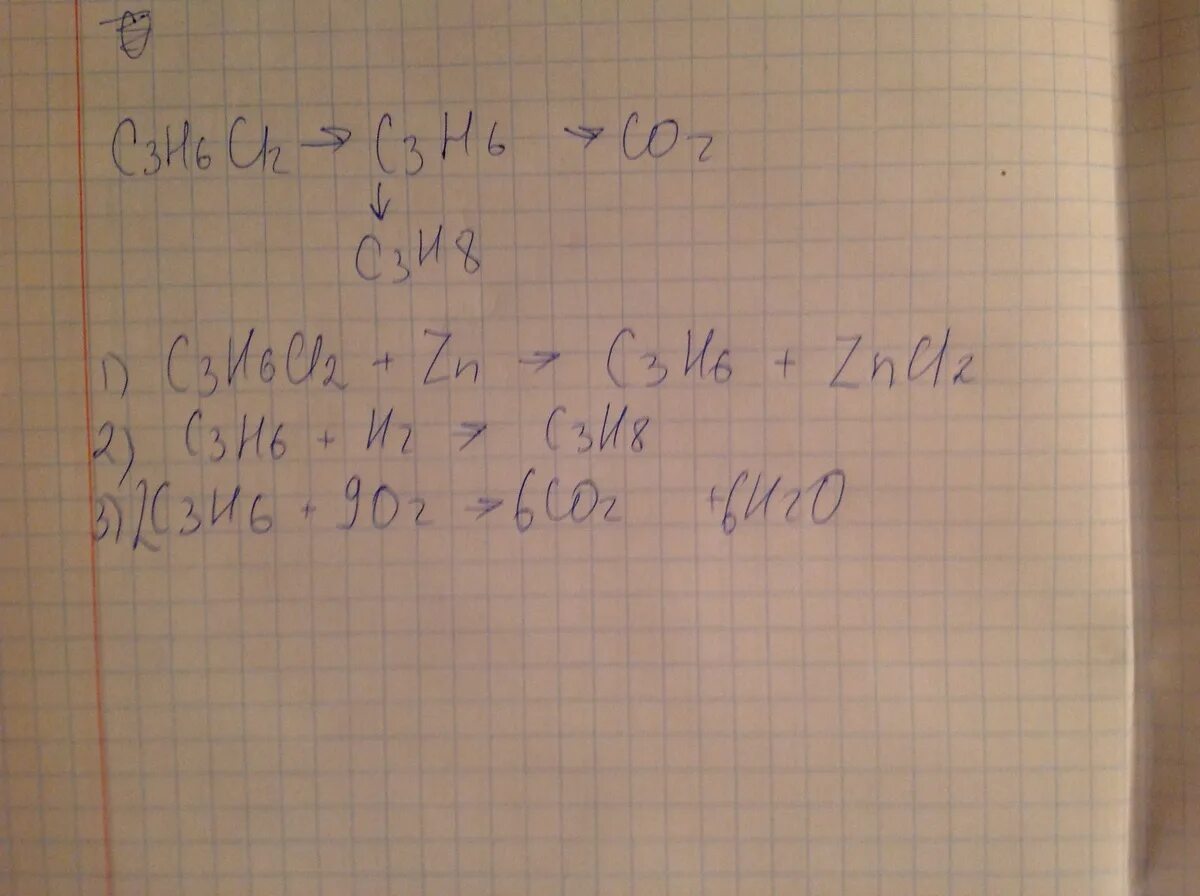 C3H6Cl2 → C3H6 → CO2
↓
C3H8
1) C3H6Cl2 + Zn → C3H6 + ZnCl2
2) C3H6 + H2 → C3H8
3) 2C3H6 + 9O2 → 6CO2 + 6H2O